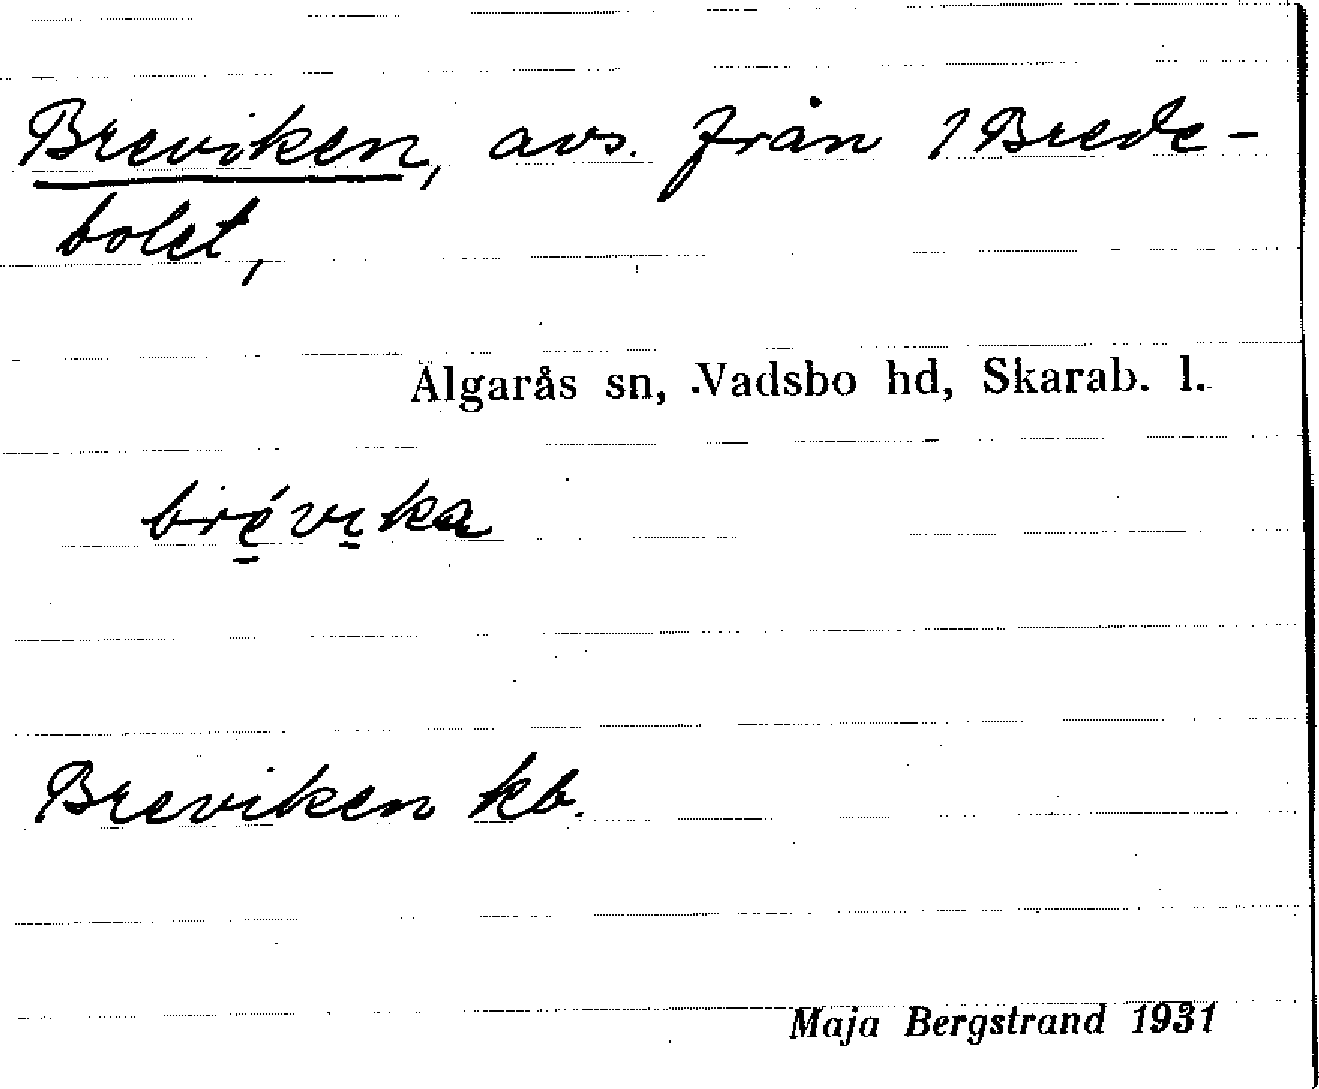 Breviken, avs. från 1 Brede-
bolet,
Älgarås sn, Vadsbo hd, Skarab. l.
brévika
Breviken kb.
Maja Bergstrand 1931